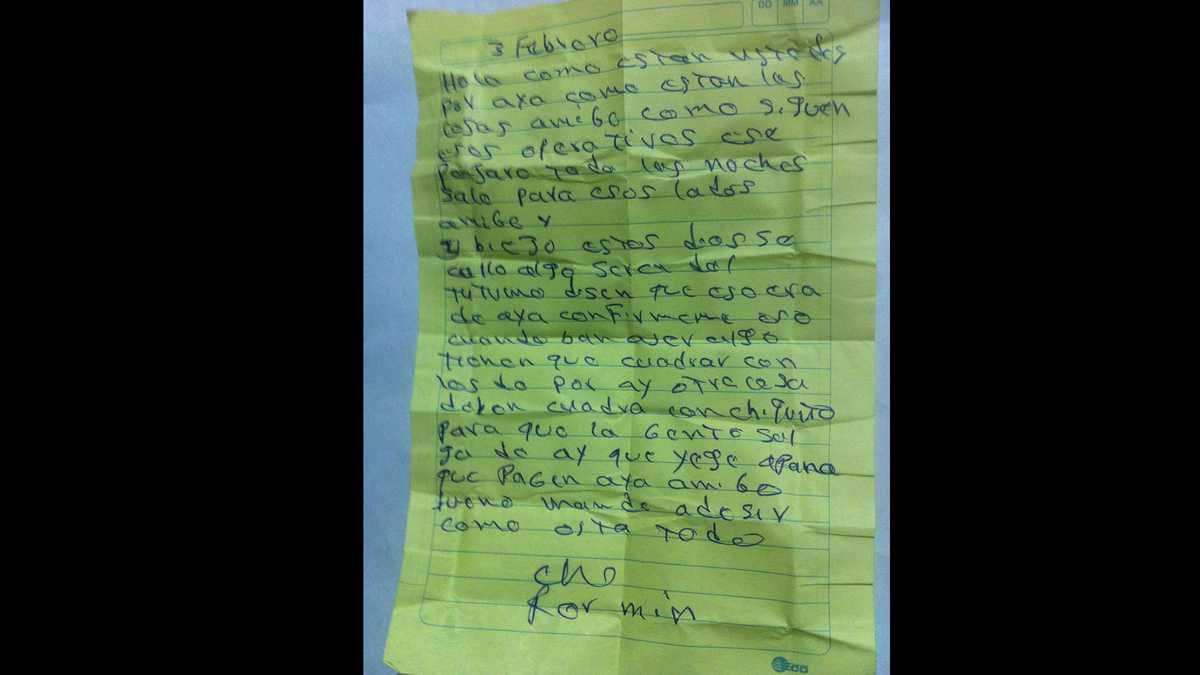 DD MM AA
3 Febrero
Hola como estan ustedes
por aya como estan las
cosas amigo como siguen
esos operativos ese
pajaro toda las noches
sale para esos lados
amigo y
biejo estos dias se
callo algo serca del
tutumo disen que eso era
de aya confirmeme eso
cuando ban aser algo
tienen que cuadrar con
los de por ay otra cosa
deben cuadra con chiquito
para que la gente sal
ga de ay que yege apana
que Pagen aya amigo
bueno mande adesir
como esta todo
cho
fermin